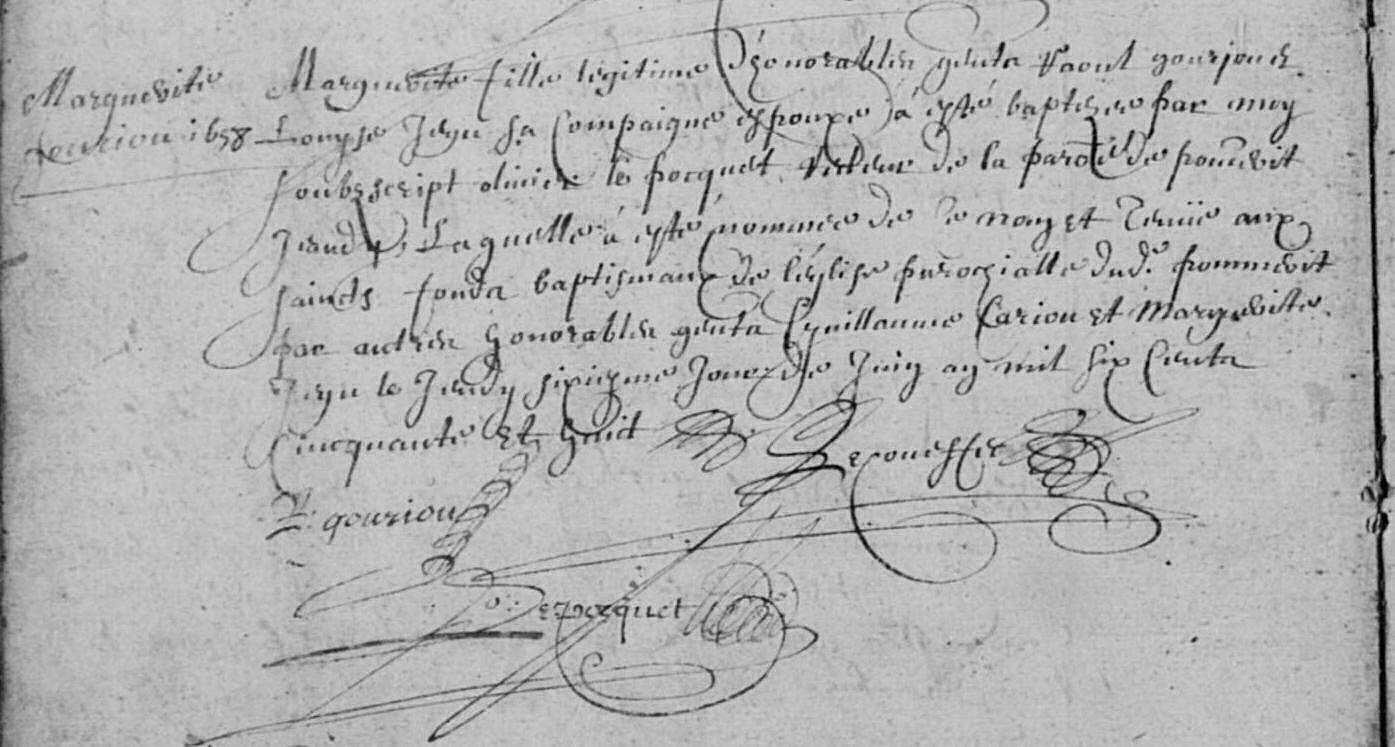 Marguerite
gouriou 1658
Marguerite fille legitime d'honorables gents Raoul gouriou et
Louyse Jegu sa Compaigne espouze à esté baptizee par moy
soubsscript olivier le pocquet Recteur de la paroisse de pommerit
Jaudy, Laquelle à esté nommee de ce nom et tenüe aux
saincts fonds baptismaux de l'églize parochialle dud. pommerit
par autres honorables gents Guillaume Cariou et Marguerite
Jegu le Jeudy sixiesme Jour de Juin an mil six Cents
Cincquante Et huict
R gouriou
Le pocquet